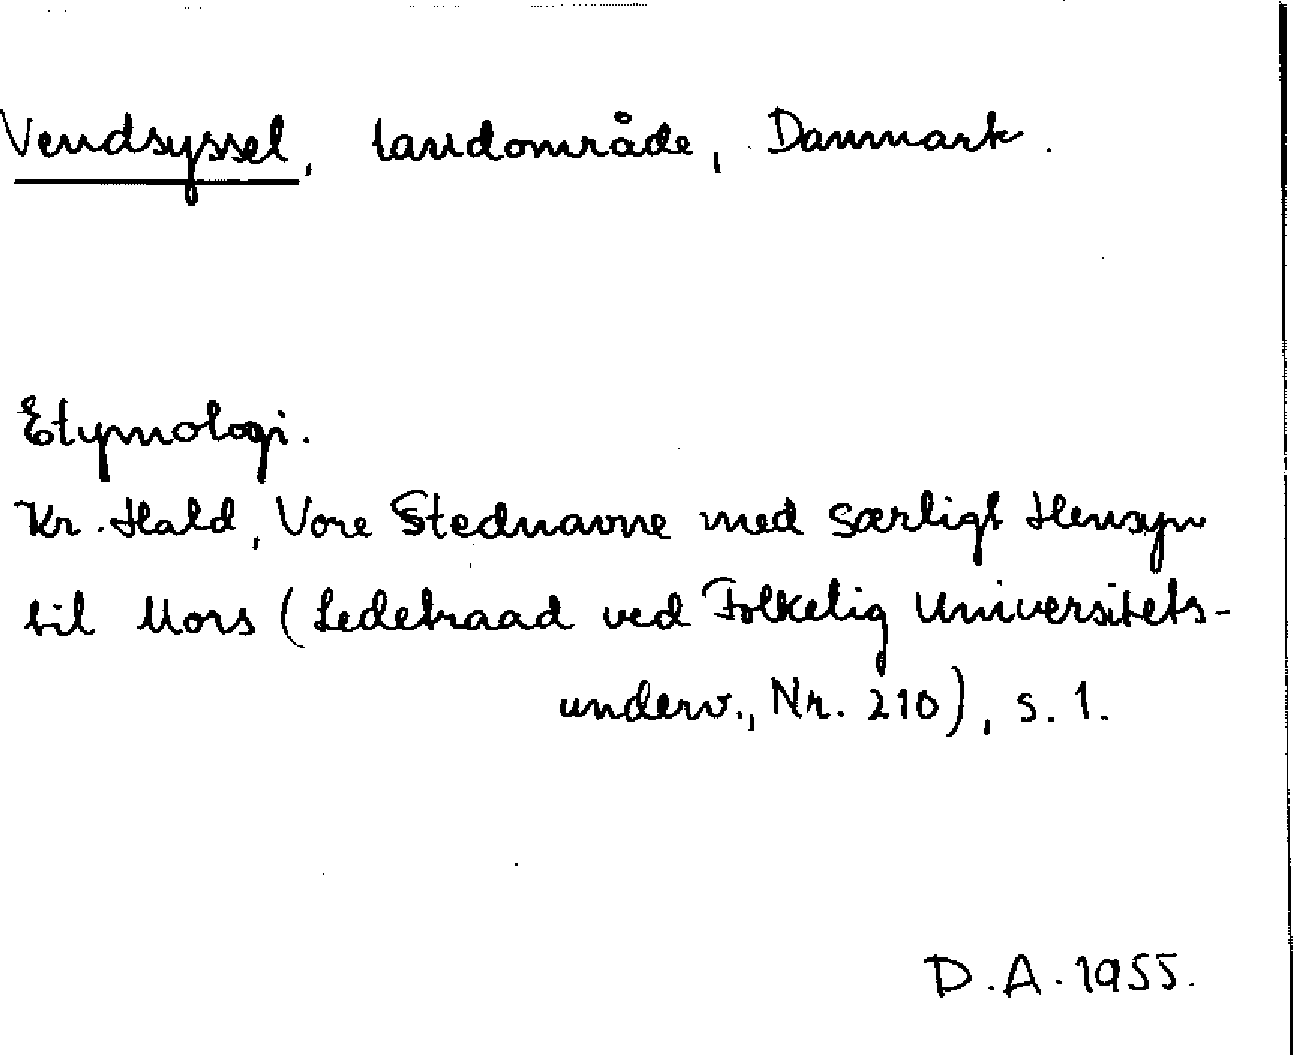 Vendsyssel, landområde, Danmark.
Etymologi.
Kr. Hald, Vore Stednavne med særligt Hensyn
til Mors (Ledetraad ved Folkelig Universitets-
underv., Nr. 210), s. 1.
D.A. 1955.